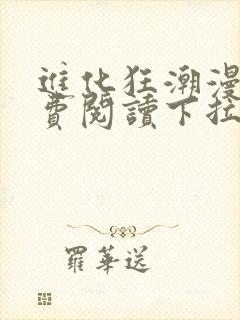 進化狂潮漫
費閱讀下拉
羅華送